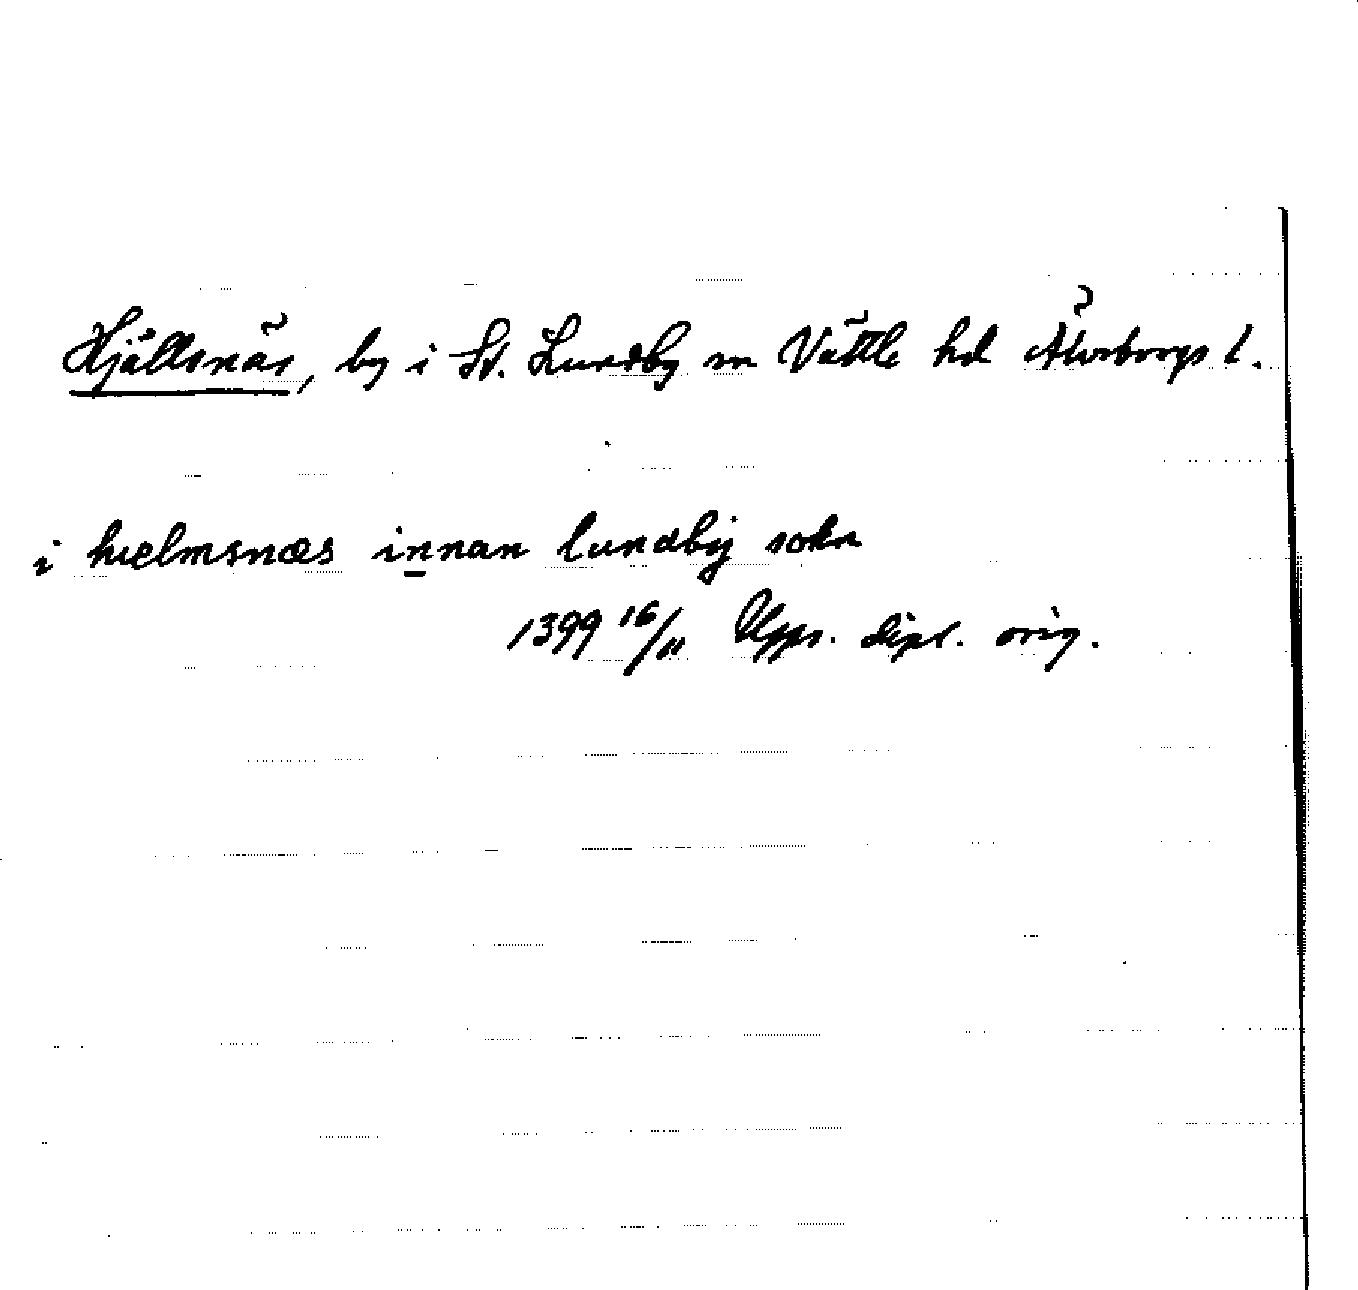 Hjällsnäs, by i St. Lundby sn Vättle hd Älvsborgs l.
i hielmsnæs innan lundbij sokn
1399 16/11 Upps. dipl. orig.